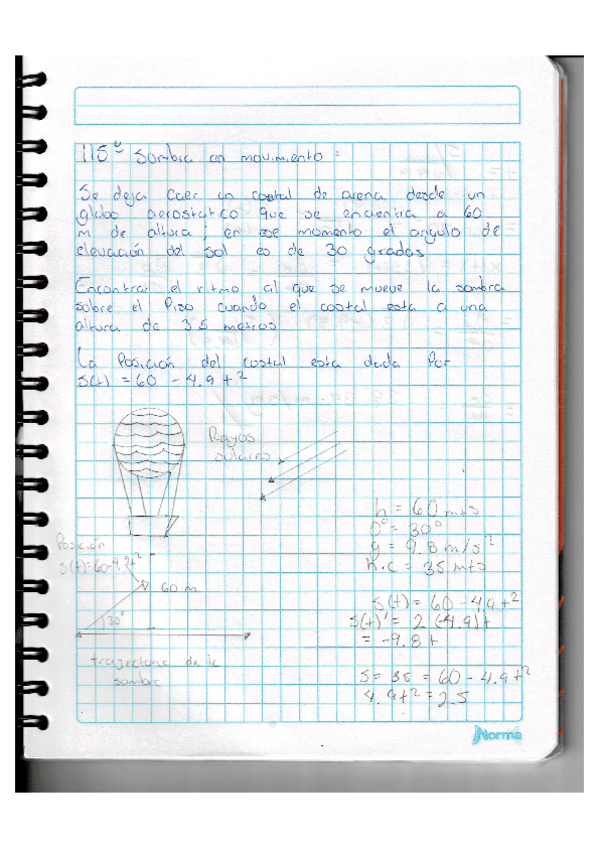 115° Sombra en movimiento =
Se deja caer un costal de arena desde un
globo aerostatico que se encuentra a 60
m de altura; en ese momento el angulo de
elevación del sol es de 30 grados
Encontrar el ritmo al que se mueve la sombra
sobre el Piso cuando el costal esta a una
altura de 35 metros
La Posición del costal esta dada Por
S(t) = 60 - 4.9t²
Rayos
solares
Posición
S(t)=60-4.9t²
60 m
30°
trayectoria de la
sombra
h = 60 mts
0° = 30°
g = 9.8 m/s²
h.c = 35 mts
S(t) = 60 - 4.9t²
S(t)' = 2(-4.9)t
= -9.8t
S = 35 = 60 - 4.9t²
4.9t² = 25
Norma